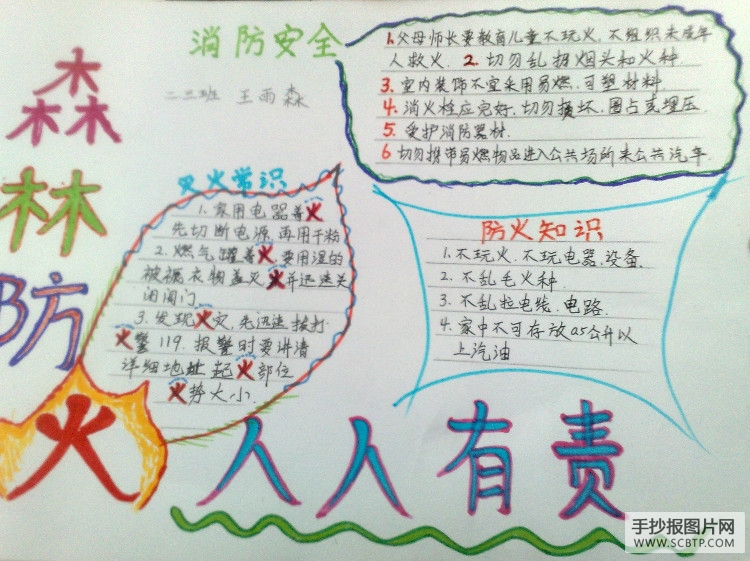 消防安全
二三班 王雨森
森
林
防
火
人人有责
1.父母师长要教育儿童不玩火,不组织未成年
人救火. 2.切勿乱扔烟头和火种.
3.室内装饰不宜采用易燃、可塑材料.
4.消火栓应完好,切勿损坏、圈占或埋压.
5.受护消防器材.
6 切勿携带易燃物品进入公共场所来公共汽车.
灭火常识
1.家用电器着火
先切断电源,再用干粉
2.燃气罐着火,要用湿的
被褥衣物盖灭火并迅速关
闭阀门
3.发现火灾,先迅速拨打
火警119.报警时要讲清
详细地址起火部位
火势大小.
防火知识
1.不玩火、不玩电器、设备.
2.不乱毛火种.
3.不乱拉电线、电路.
4.家中不可存放0.5公升以
上汽油
手抄报图片网
WWW.SCBTP.COM